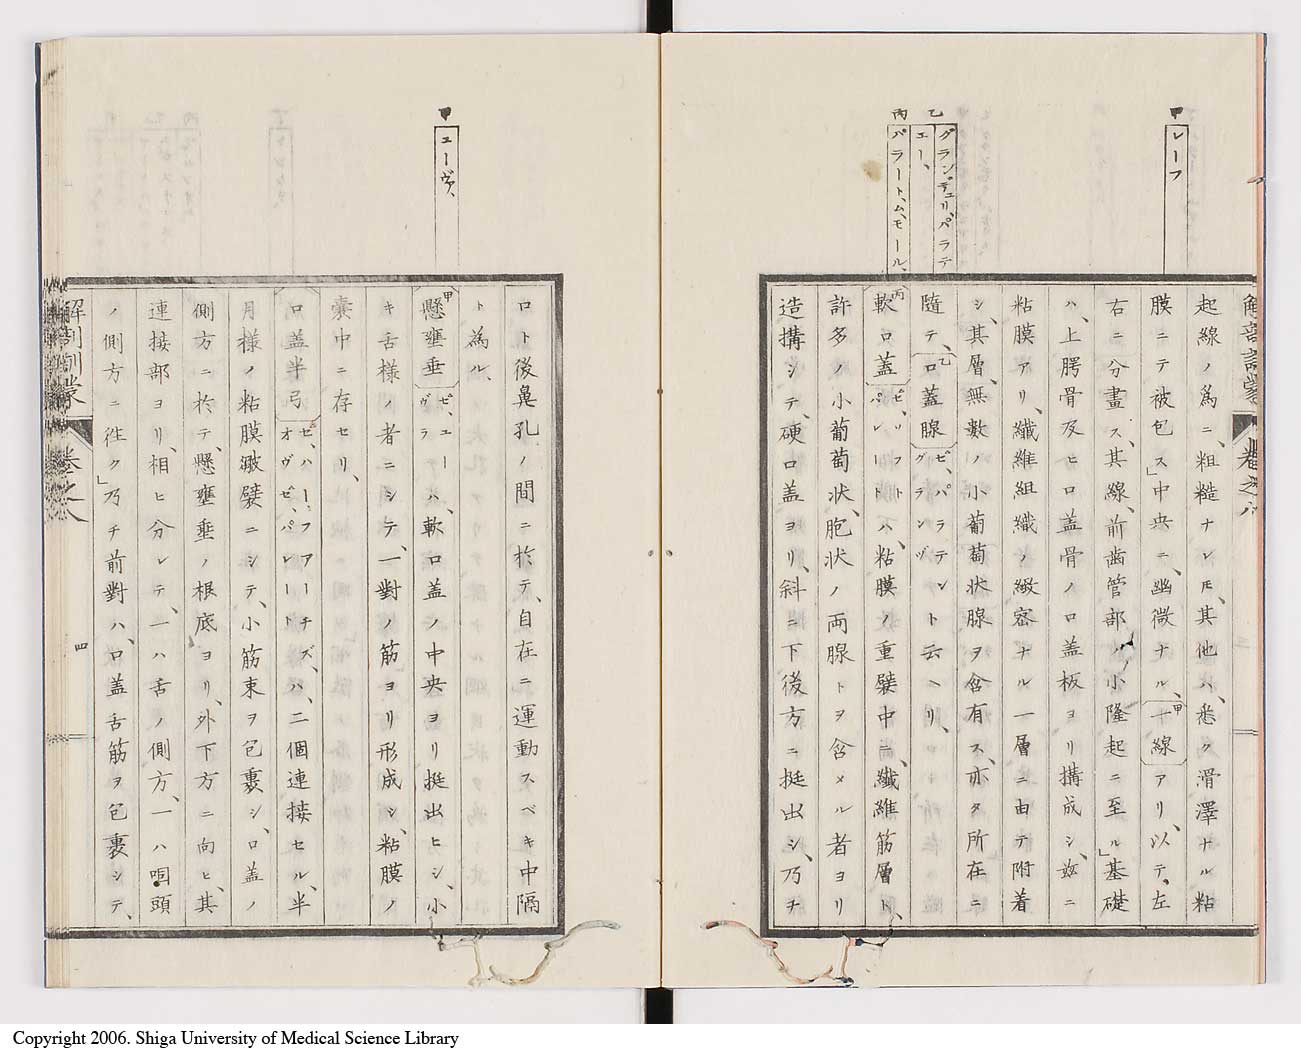 甲
レーフ
乙
グランデュリ、パラテ
エー、
丙
パラート、ム、モール、
起線ノ為ニ、粗糙ナレ𪜈、其他ハ、悉ク滑澤ナル粘
膜ニテ被包ス」中央ニ、幽微ナル、甲一線アリ、以テ、左
右ニ分畫ス、其線、前齒管部ノ小隆起ニ至ル」基礎
ハ、上腭骨及ヒ口蓋骨ノ口蓋板ヨリ搆成シ、玆ニ
粘膜アリ、纖維組織ノ緻密ナル一層ニ由テ附着
シ、其層、無數ノ小葡萄状腺ヲ含有ス、亦タ所在ニ
隨テ、乙口蓋腺ゼ、パラテン、グランヅト云ヘリ、
丙軟口蓋ゼ、ソフト、パレートハ、粘膜ノ重襞中ニ、纖維筋層ト、
許多ノ小葡萄状、胞状ノ両腺トヲ含メル者ヨリ
造搆シテ、硬口蓋ヨリ、斜ニ下後方ニ挺出シ、乃チ
解剖訓蒙
卷之八
甲
ユーヴァ、
口ト後鼻孔ノ間ニ於テ、自在ニ運動スベキ中隔
ト為ル、
甲懸壅垂ゼ、ユーヴラハ、軟口蓋ノ中央ヨリ挺出ヒシ、小
キ舌様ノ者ニシテ、一對ノ筋ヨリ形成シ、粘膜ノ
囊中ニ存セリ、
口蓋半弓ゼ、ハーフアーチズ、オヴゼ、パレートハ、二個連接セル、半
月様ノ粘膜皺襞ニシテ、小筋束ヲ包裹シ、口蓋ノ
側方ニ於テ、懸壅垂ノ根底ヨリ、外下方ニ向ヒ、其
連接部ヨリ、相ヒ分レテ、一ハ舌ノ側方、一ハ咽頭
ノ側方ニ往ク」乃チ前對ハ、口蓋舌筋ヲ包裹シテ、
解剖訓蒙
卷之八
四
Copyright 2006. Shiga University of Medical Science Library